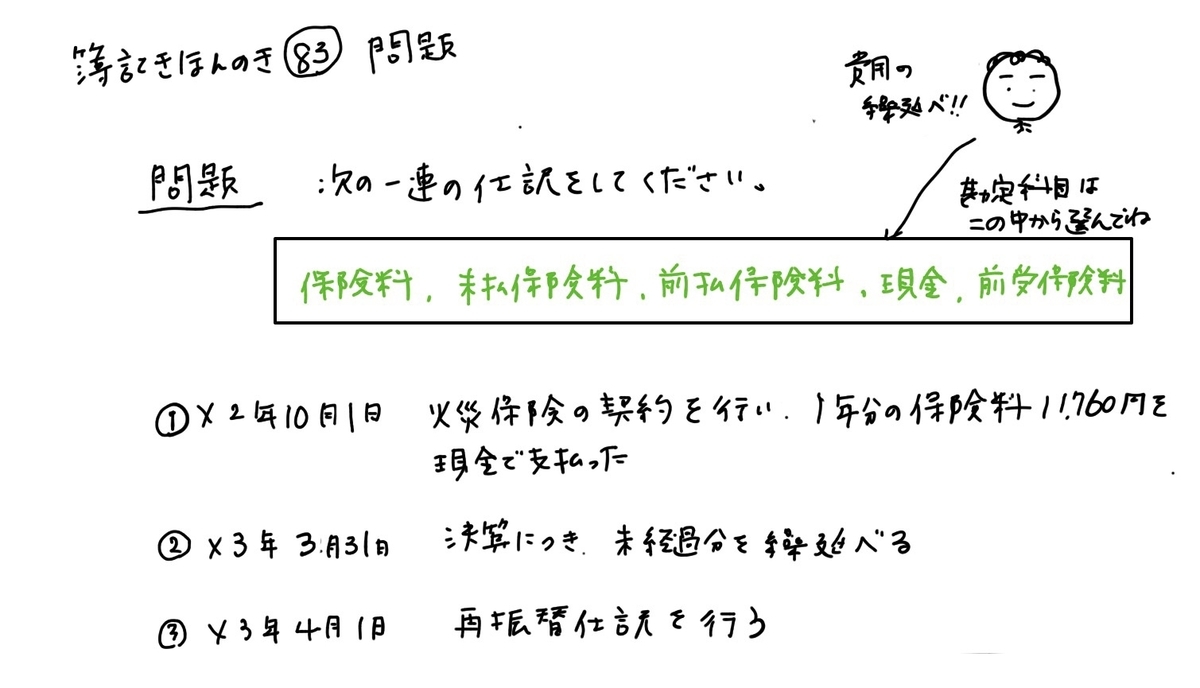 簿記きほんのき 83 問題
費用の
繰延べ!!
問題 次の一連の仕訳をしてください。
勘定科目は
この中から選んでね
保険料, 未払保険料, 前払保険料, 現金, 前受保険料
① ×2年10月1日 火災保険の契約を行い、1年分の保険料11,760円を
現金で支払った
② ×3年3月31日 決算につき、未経過分を繰延べる
③ ×3年4月1日 再振替仕訳を行う